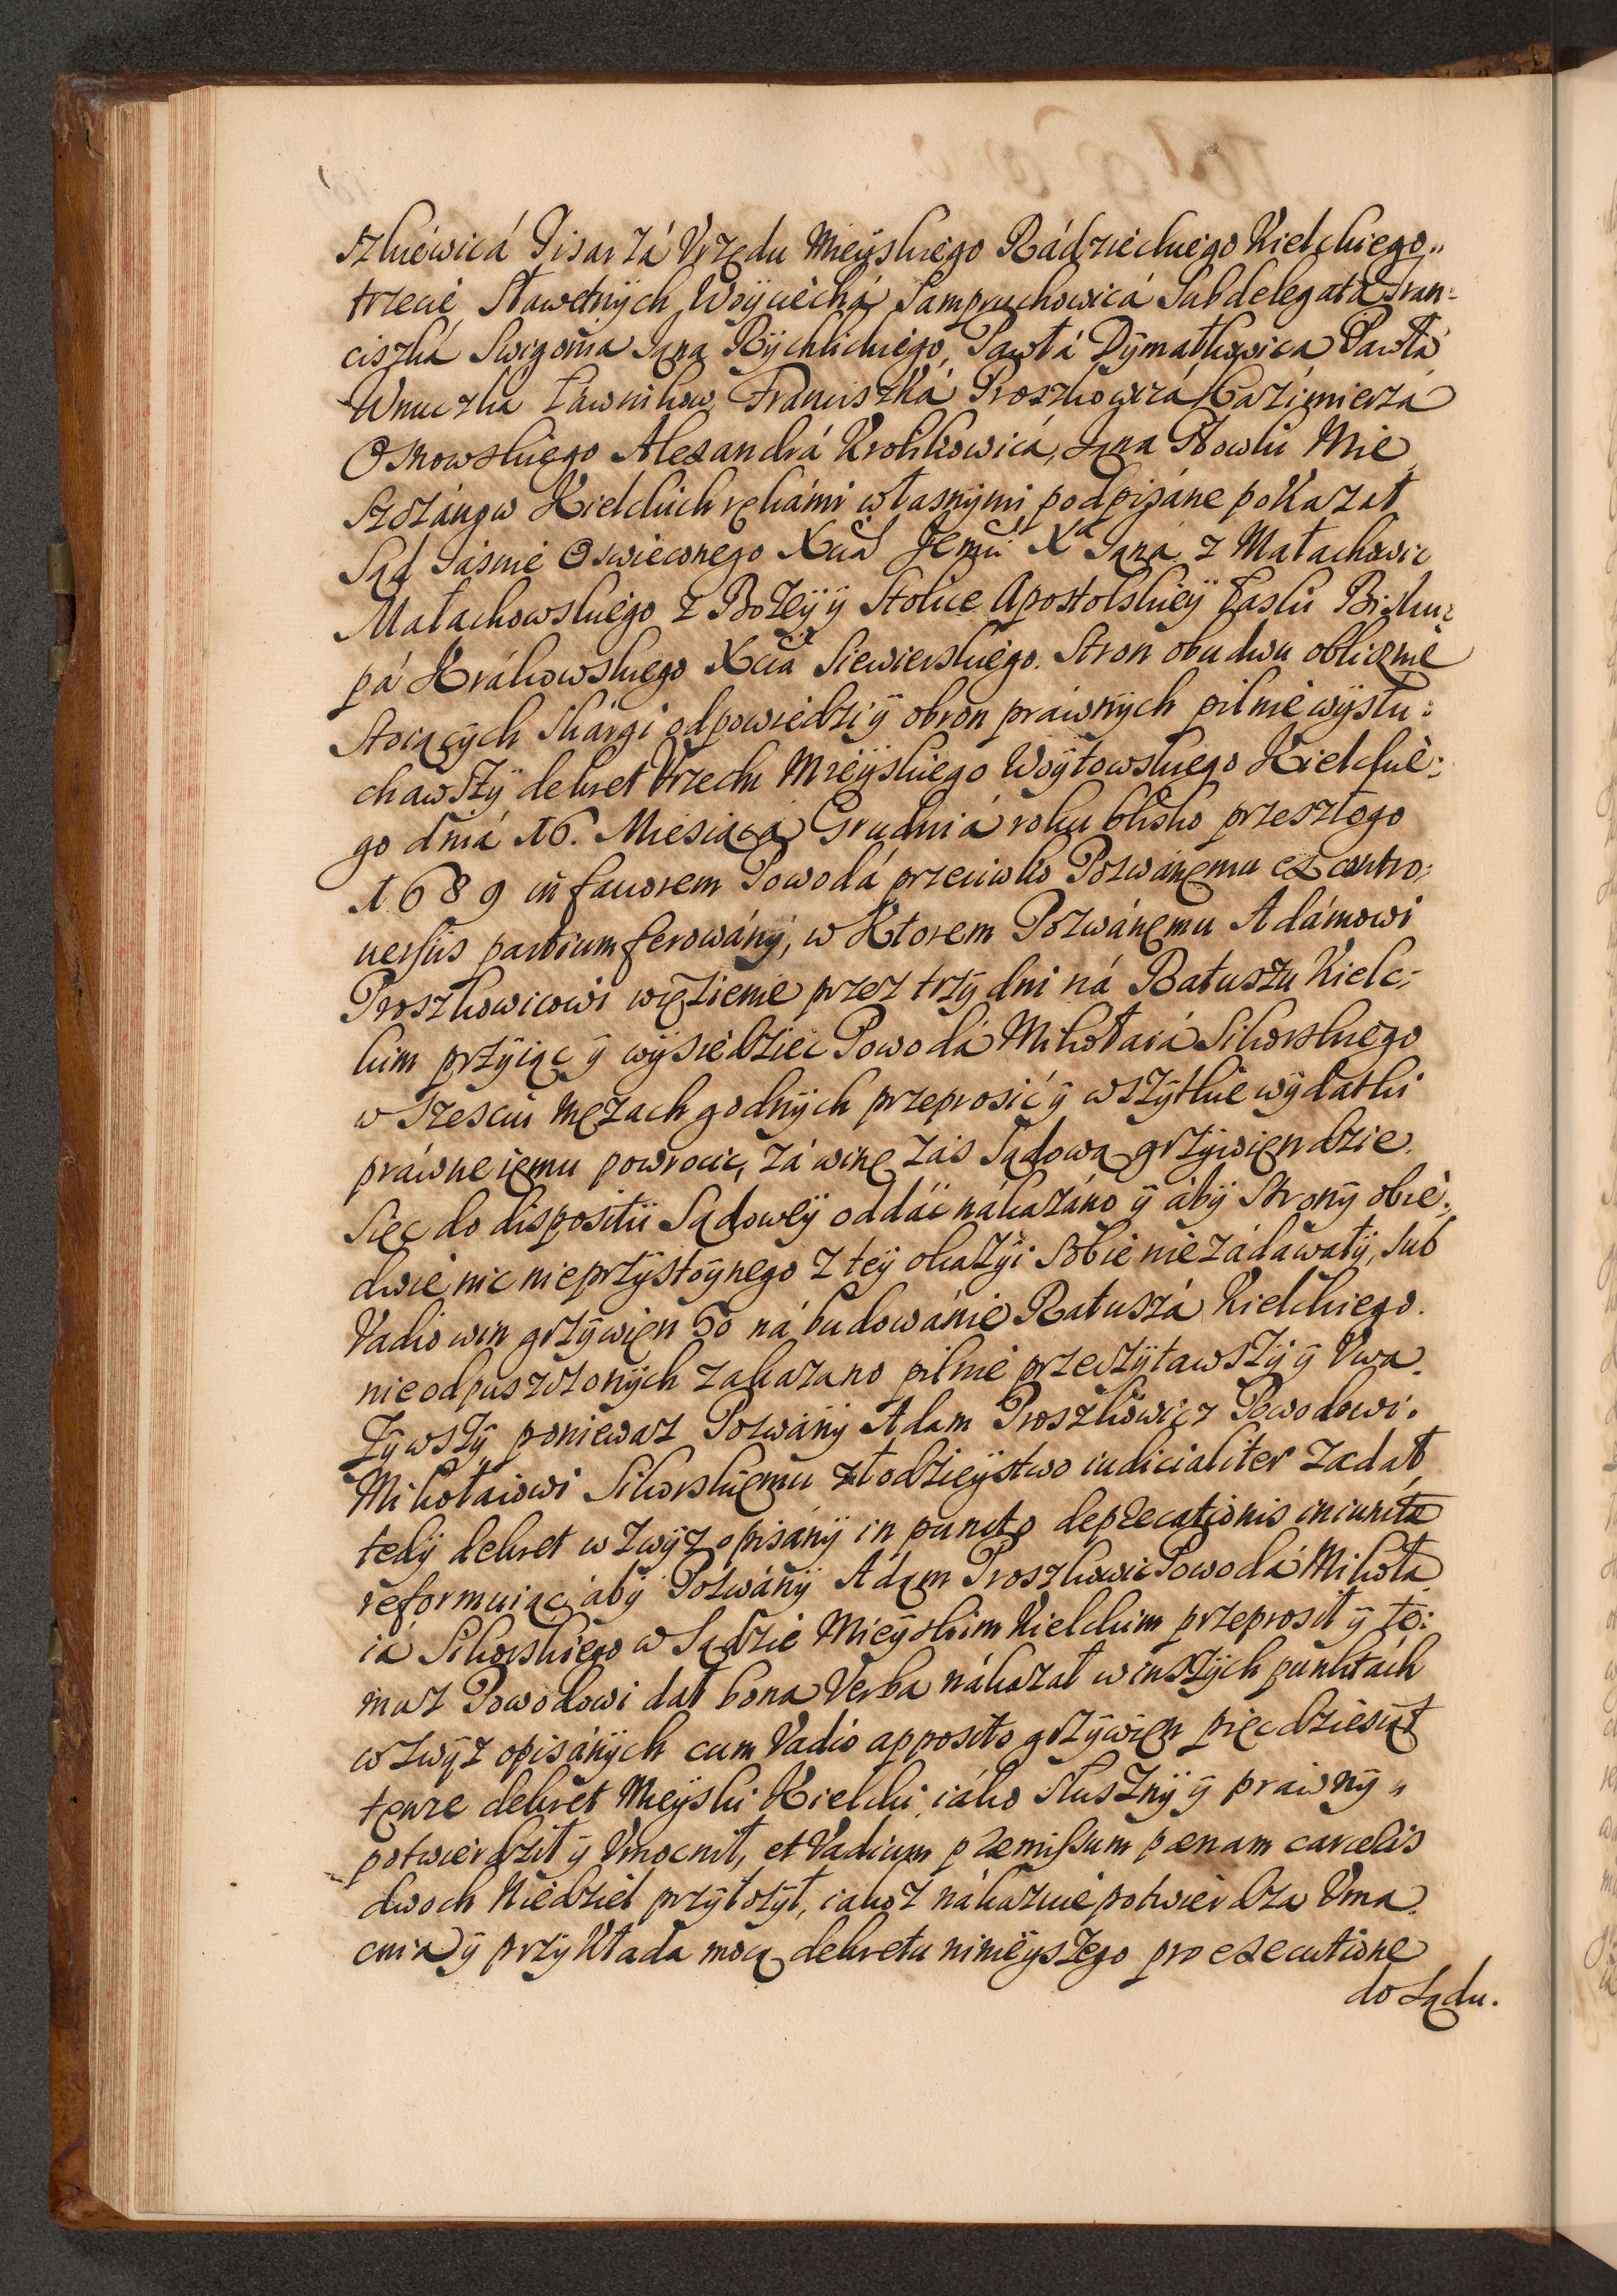 szkiewicá Pisarzá Vrzędu Mieyskiego Rádzieckiego Kielckiego„
trzecie Sławetnÿch Woyciechá Sampruchowicá Subdelegatá Fran=
ciszká Swigonia Jana Rÿchlickiego, Pawłá Dÿmatkowica Pawłá
Wnuczka Ławnikow Franciszká Proszkowicá Kazimierzá
Osnowskiego Alexandrá Krolikowicá, Jana Słowki Mie
szczánow Kielckich rękámi własnÿmi podpisáne pokazał
Sąd Jásnie Oswieconego Xcia Jemci Xa Janá z Małachowic
Małachowskiego z Bożeÿ ÿ Stolice Apostolskieÿ Łaski Bisku=
pá Krákowskiego Xcia Siewierskiego. Stron obudwu oblicznie
stoiącÿch skárgi odpowiedzi ÿ obron prawnÿch pilnie wÿsłu=
chawszÿ dekret Vrzedu Mieÿskiego Woÿtowskiego Kielckie=
go dniá 16. Miesiącá Grudniá roku blisko przeszłego
1689 in fauorem Powodá przeciwko Pozwánemu ex contro=
uersiis partium ferowánÿ, w Ktorem Pozwánemu Adámowi
Proszkowicowi więzienie przez trzÿ dni ná Ratuszu Kielc=
kim przÿiąc ÿ wÿsiedziec Powodá Mikołaiá Sikorskiego
w szesciu mężach godnÿch przeprosić ÿ wszÿtkie wÿdatki
práwne iemu powrocic, zá winę zás Sądową grzÿwien dzie=
sięc do dispositii Sądoweÿ oddáć nákazáno ÿ ábÿ Stronÿ obie=
dwie nic nieprzÿstoÿnego z teÿ okazÿi sobie nie zádawałÿ, sub
Vadio win grzÿwien 50 ná budowánie Ratuszá Kielckiego.
nieodpuszczonÿch zakazano pilnie przeczÿtawszÿ ÿ Vwa=
żÿwszÿ poniewaz Pozwánÿ Adam Proszkowicz Powodowi.
Mikołaiowi Sikorskiemu złodzieÿstwo iudicialiter zadał
tedÿ dekret wzwÿz opisánÿ in puncto deprecationis iniunctæ
reformuiąc ábÿ Pozwánÿ Adam Proszkowic Powodá Mikoła
iá Sikorskiego w Sądzie Mieÿskim Kielckim przeprosił ÿ te=
muz Powodowi dał bona Verba nákazał w inszÿch punktách
wzwÿz opisánÿch cum Vadio apposito grzÿwien pięcdziesiąt
tenze dekret Mieÿski Kielcki iáko słusznÿ ÿ prawnÿ„
potwierdził ÿ Vmocnił, et Vadium præmissum pænam carceris
dwoch Niedziel przÿłozÿł, iakoz nákazuie potwierdza Vma=
cnia ÿ przÿkłada mocą dekretu ninieÿszego pro executione
do Sądu.